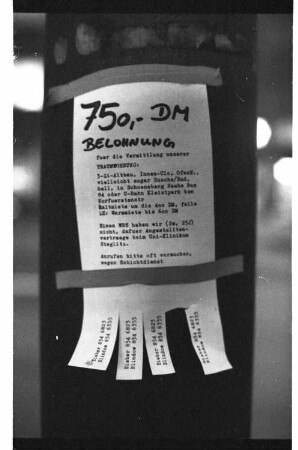 750,- DM
BELOHNUNG
fuer die Vermittlung unserer
TRAUMWOHNUNG:
3-Zi-Altbau, Innen-Clo, OfenH.,
vielleicht sogar Dusche/Bad,
hell, in Schoeneberg Naehe Bus
84 oder U-Bahn Kleistpark bzw
Kurfuerstenstr
Kaltmiete um die 400 DM, falls
ZH: Warmmiete bis 600 DM
Einen WBS haben wir (Dm, 25)
nicht, dafuer Angestellten-
vertraege beim Uni-Klinikum
Steglitz.
Anrufen bitte oft versuchen,
wegen Schichtdienst
Bieber 854 6825
Blindow 854 6335
Bieber 854 6825
Blindow 854 6335
Bieber 854 6825
Blindow 854 6335
Bieber 854 6825
Blindow 854 6335